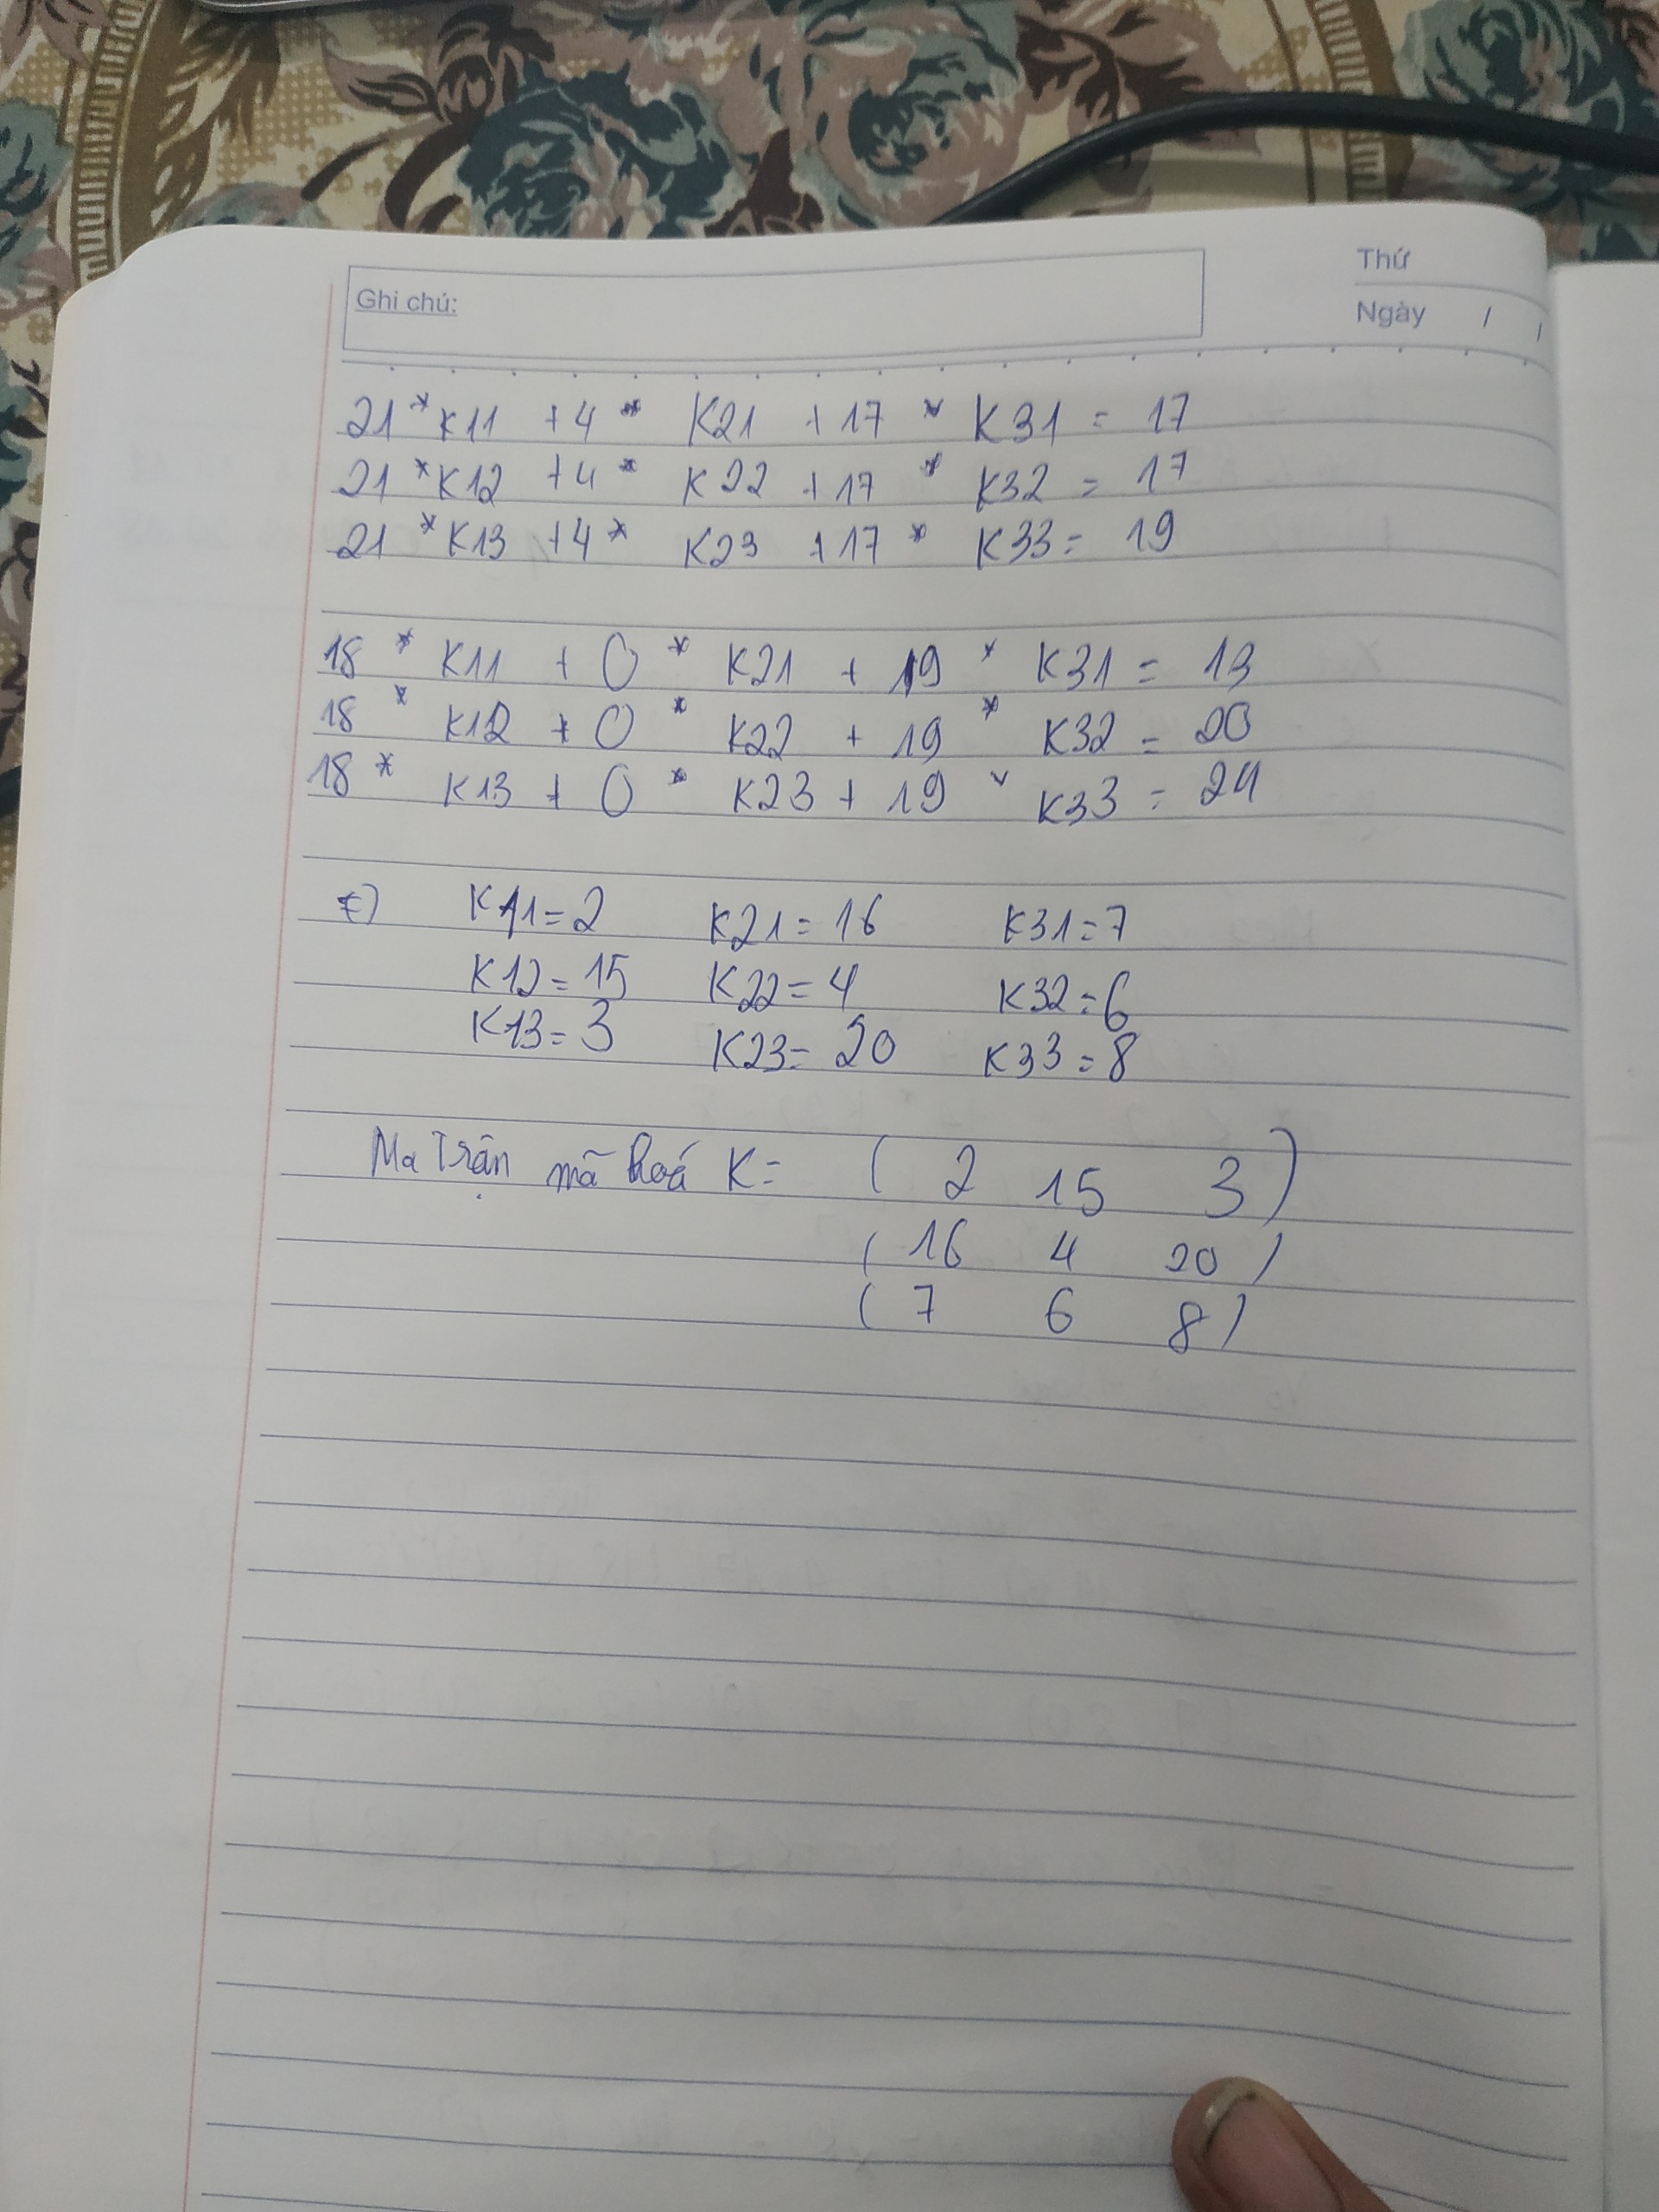 Ghi chú:
Thứ
Ngày / /
21 * K11 + 4 * K21 + 17 * K31 = 17
21 * K12 + 4 * K22 + 17 * K32 = 17
21 * K13 + 4 * K23 + 17 * K33 = 19
18 * K11 + 0 * K21 + 19 * K31 = 13
18 * K12 + 0 * K22 + 19 * K32 = 20
18 * K13 + 0 * K23 + 19 * K33 = 24
K11 = 2 K21 = 16 K31 = 7
K12 = 15 K22 = 4 K32 = 6
K13 = 3 K23 = 20 K33 = 8
Ma Trận mã hoá K = ( 2 15 3 )
( 16 4 20 )
( 7 6 8 )